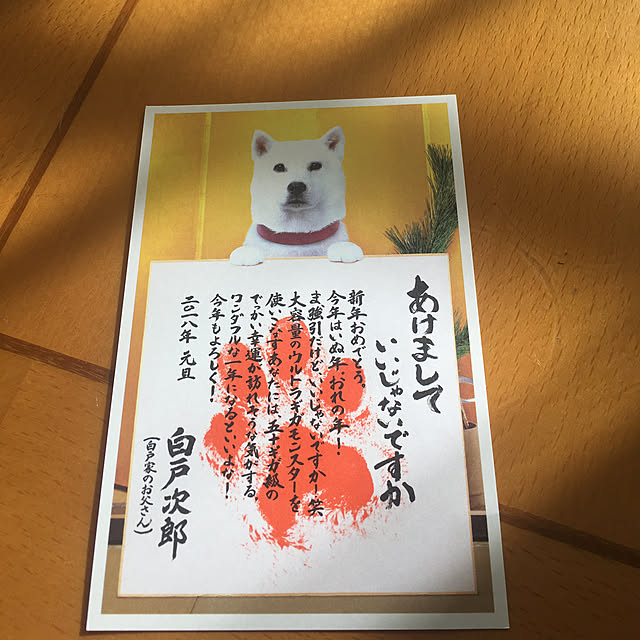 あけまして
いいじゃないですか
新年おめでとう。
今年はいぬ年、おれの年!
ま、強引だけど、いいじゃないですか!笑
大容量のウルトラギガモンスターを
使いこなすあなたには、五十ギガ級の
でっかい幸運が訪れそうな気がする。
ワンダフルな一年になるといいよな!
今年もよろしく!
二〇一八年 元旦
白戸次郎
(白戸家のお父さん)